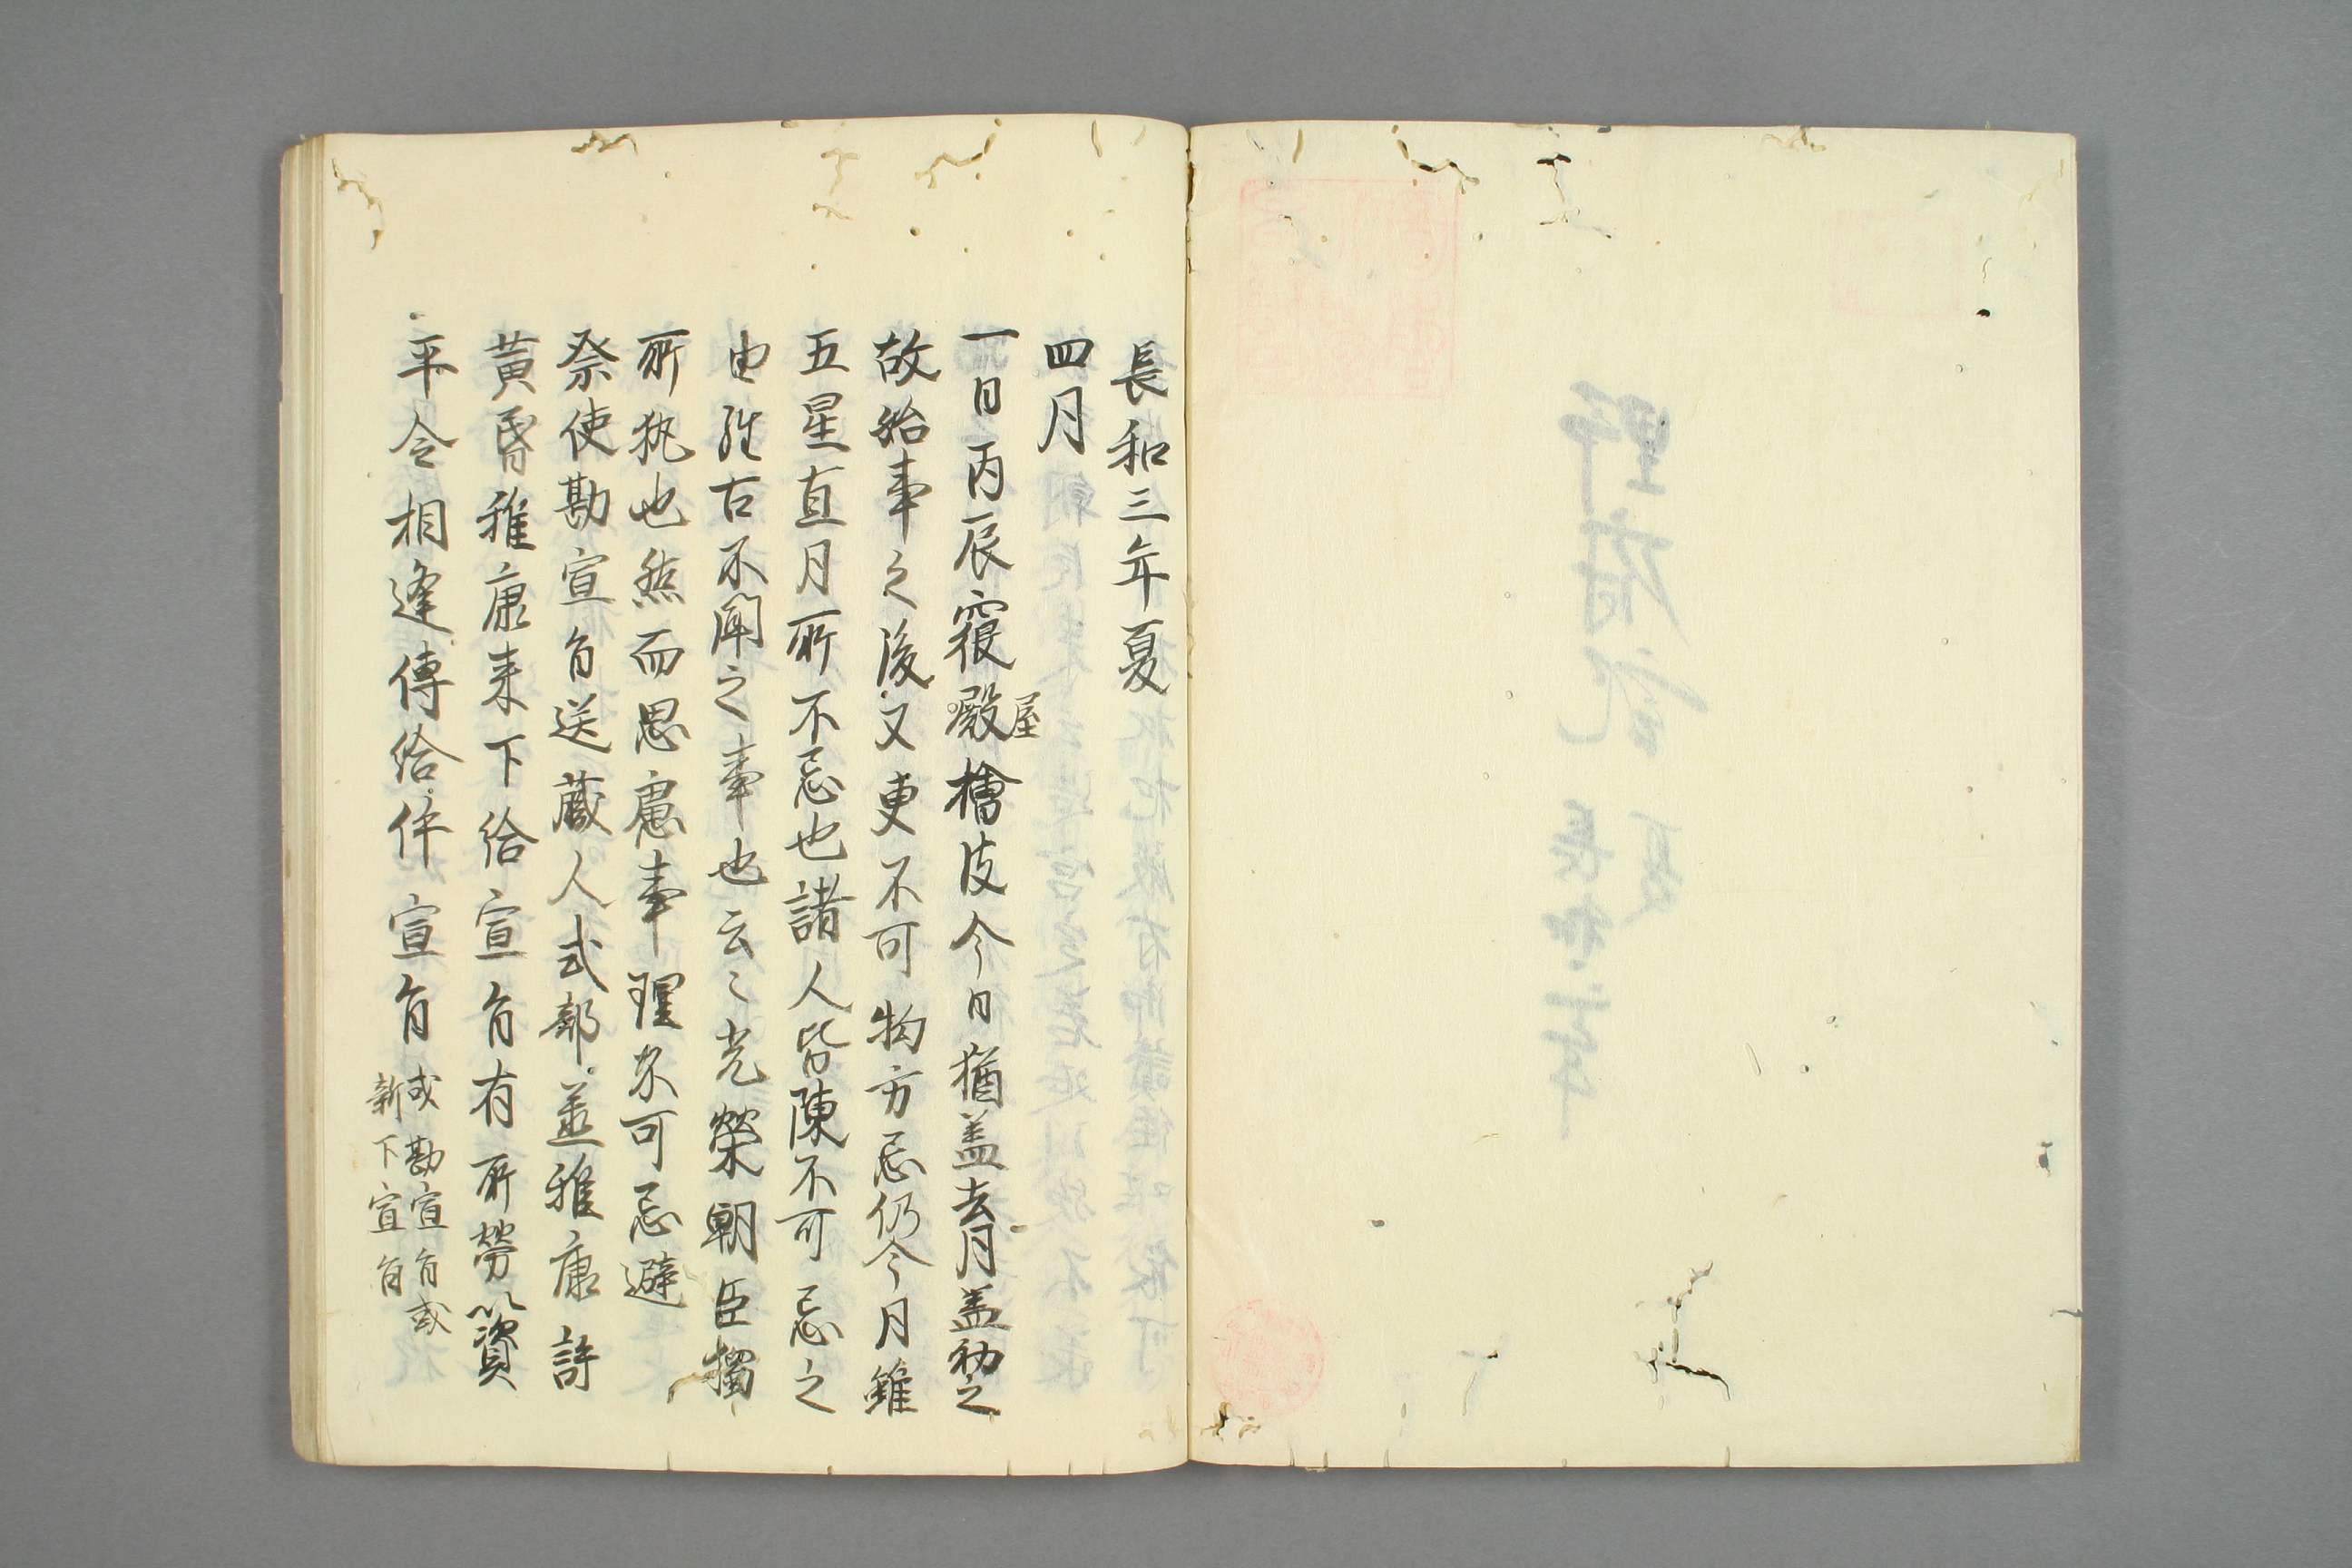 長和三年夏
四月
一日丙辰寝殿屋檜皮今日猶盖去月盖初之
故始事之後又更不可物方忌仍今月雖
五星直月所不忌也諸人皆陳不可忌之
由往古不聞之事也云〻光榮朝臣獨
所執也然而思慮事理不可忌避
祭使勘宣旨送藏人式部並雅康許
黄昏雅康来下給宣旨有所勞以資
平令相逢傳給件宣旨
或勘宣旨或
新下宣旨
野府記
長和三年
夏